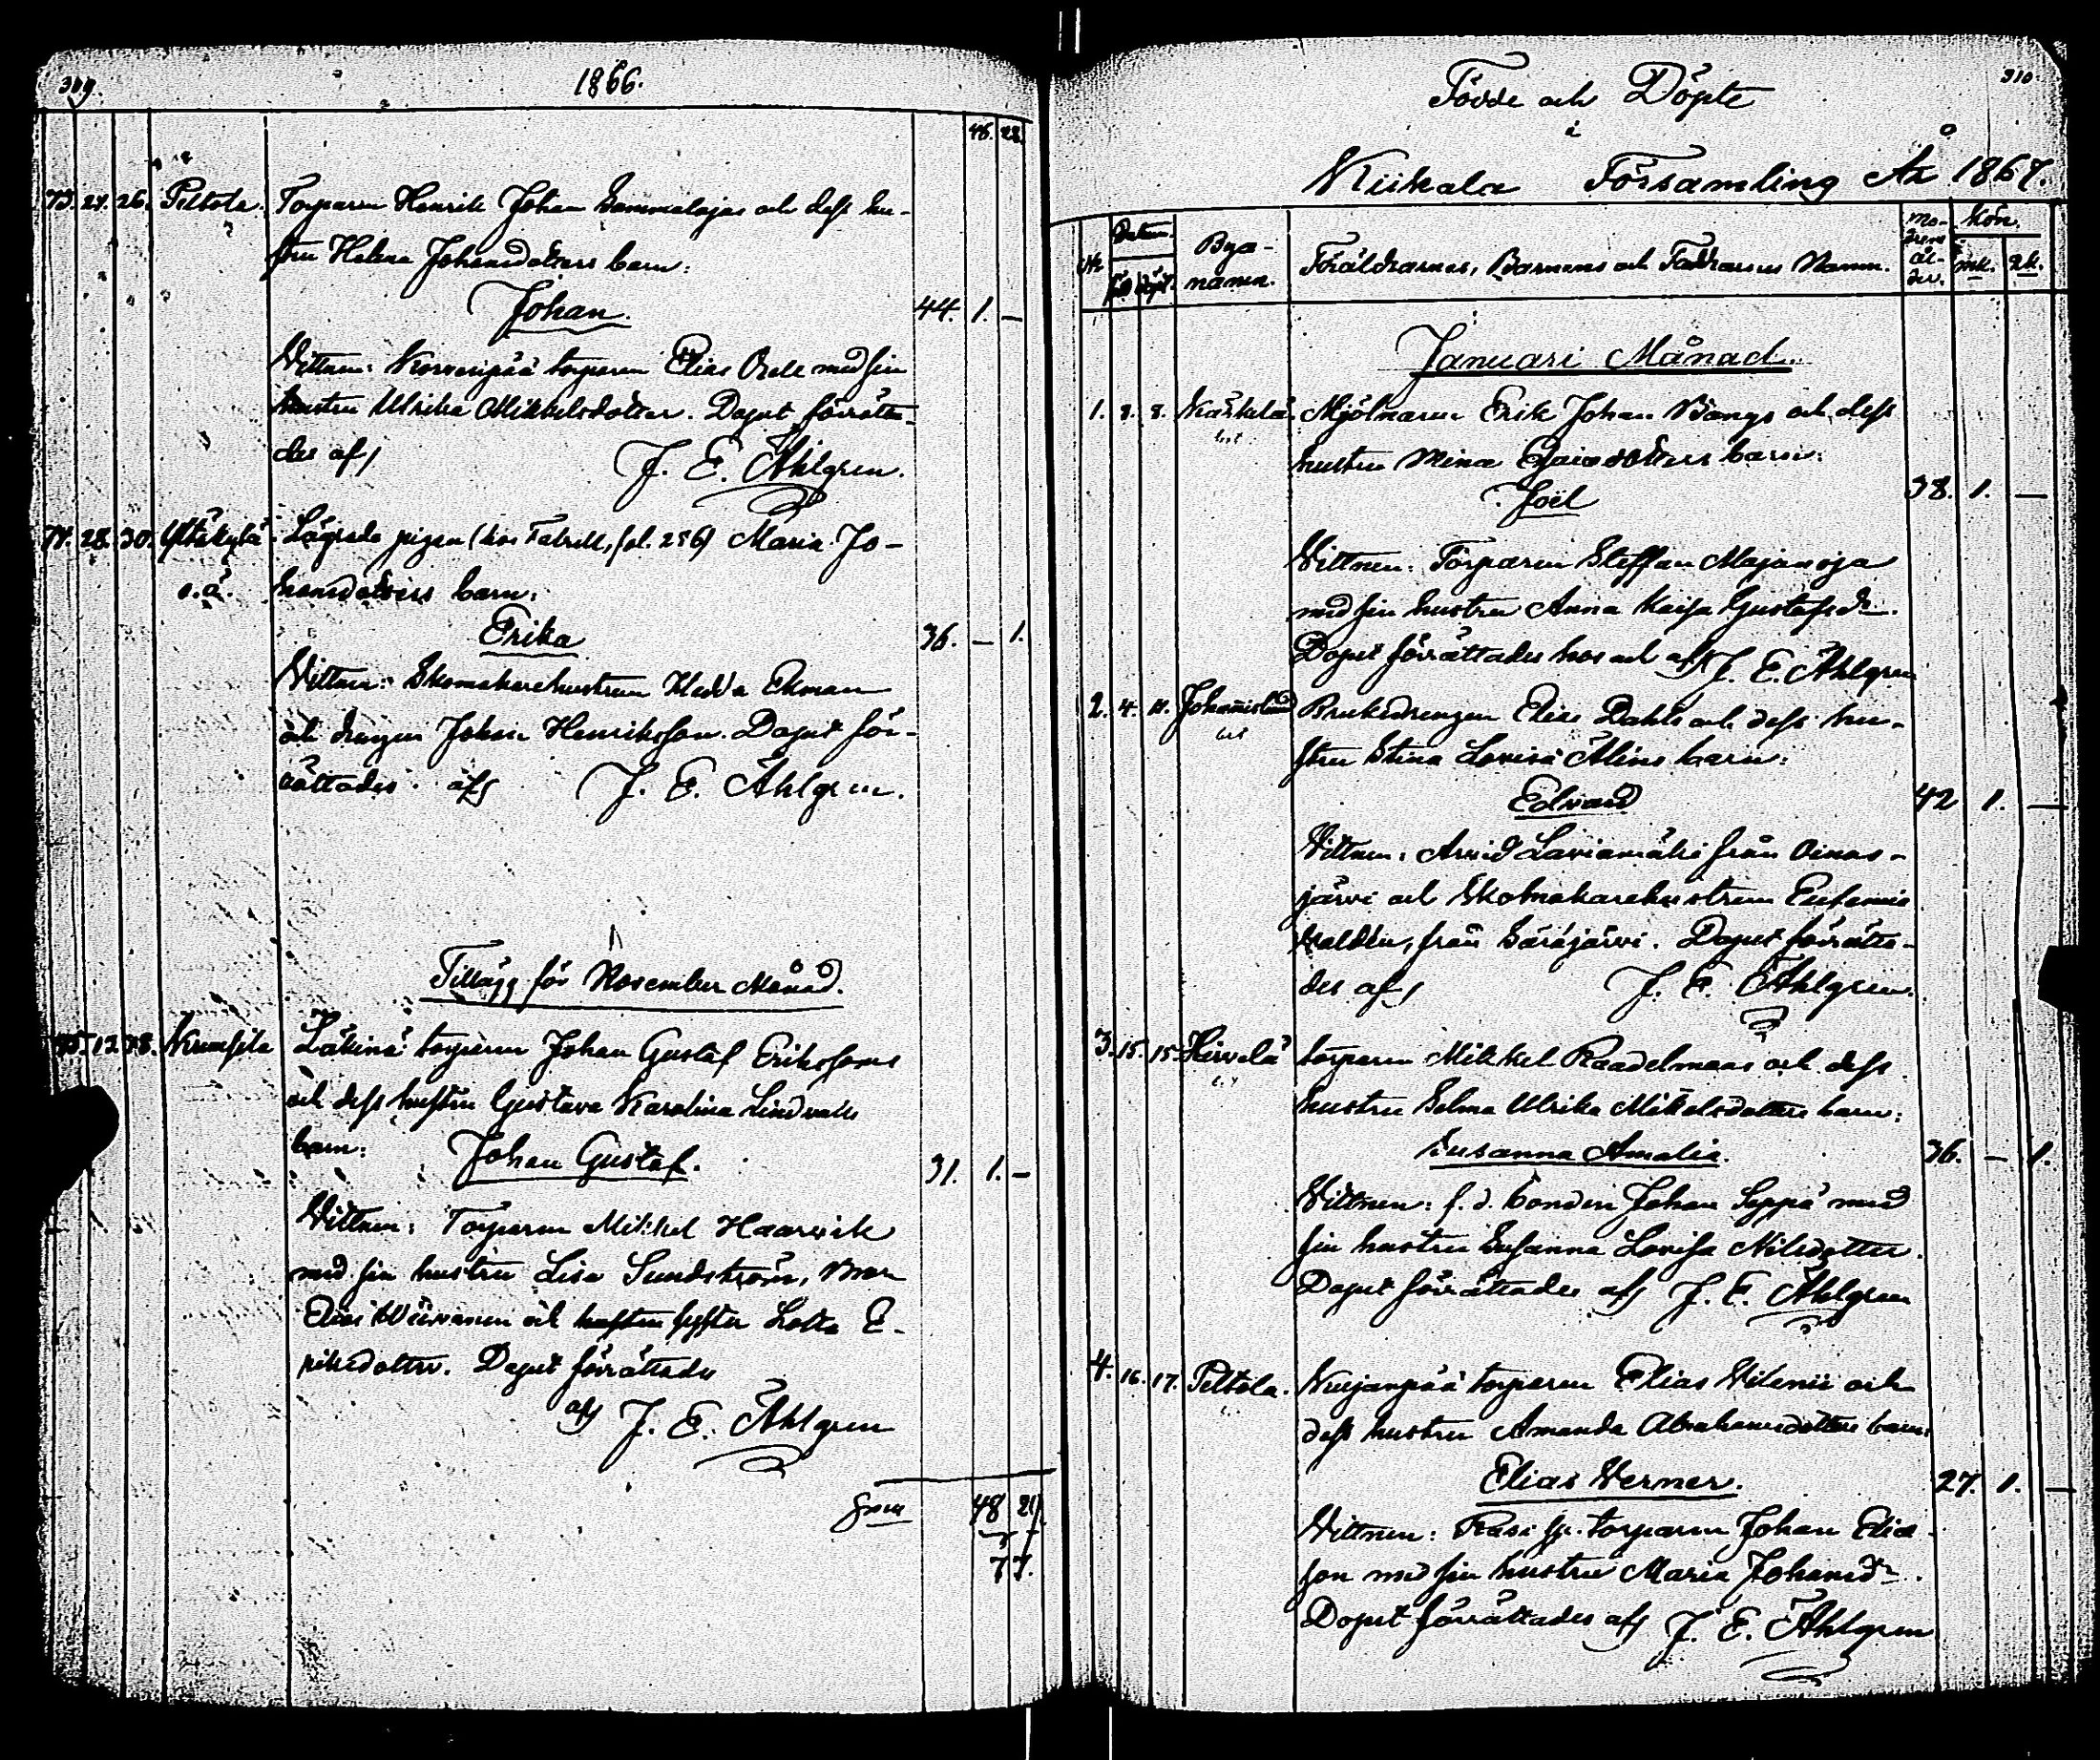 309.
1866.
48. 28.
73. 27. 26. Peltola. Torparen Henrik Johan Sammalojas och dess hu-
stru Helena Johansdotters barn:
Johan. 44. 1. —
Vittnen: Korvenpää torparen Elias Orell med sin
hustru Ulrika Mikkelsdotter. Dopet förrätta-
des af J. E. Åhlgren.
74. 28. 30. Yltäkylä Lägrade pigan (hos Fabrell, fol. 256) Maria Jo-
o.ä. hansdotters barn:
Erika 36. — 1.
Vittnen: Skomakarehustrun Hedda Ekman
och drengen Johan Henriksson. Dopet för-
rättades af J. E. Åhlgren.
Tillägg för November Månad.
75. 12. Kruusila Läkinä torparen Johan Gustaf Erikssons
och dess hustru Gustava Karolina Lindvalls
barn: Johan Gustaf. 31. 1. —
Vittnen: Torparen Mikkel Haarvik
med sin hustru Lisa Sundström,
Elias och hustru syster Lotta E-
riksdotter. Dopet förrättades
af J. E. Åhlgren
48 29.
77.
310.
Födde och Döpte
i
Kiikala Församling År 1867.
No Datum. Bya- Mo- Kön.
föd. döpt. namn. Föräldrarnes, Barnens och Faddrarnes Namn. drens ål- der. mk. qk.
Januari Månad.
1. 8. 8. Kärkelä Mjölnaren Erik Johan Bangs och dess
hustru Mina Esaiasdotters barn:
Joël 38. 1. —
Vittnen: Torparen Staffan Majamoja
med sin hustru Anna Kaisa Gustafsdr.
Dopet förrättades hos och af J. E. Åhlgren
2. 4. 11. Johannislund Bruksdrengen Elias Dahls och dess hu-
stru Stina Lovisa Ålins barn:
Edvard 42 1. —
Vittnen: Arvid Laviamäki från Oinas-
järvi och Skomakarehustrun Eufemia
från Särsjärvi. Dopet förrätta-
des af J. E. Åhlgren.
3. 15. 15. Hirvelä torparen Mikkel Raadelmaas och dess
hustru Selma Ulrika Mikkelsdotters barn:
Susanna Amalia. 36. — 1.
Vittnen: f. d. bonden Johan Seppä med
sin hustru Susanna Lovisa Nilsdotter.
Dopet förrättades af J. E. Åhlgren
4. 16. 17. Peltola. Kujanpää torparen Elias Vilenii och
dess hustru Amanda Abrahamsdotters barn:
Elias Verner. 27. 1. —
Vittnen: Rasi torparen Johan Elia-
son med sin hustru Maria Johansdr.
Dopet förrättades af J. E. Åhlgren